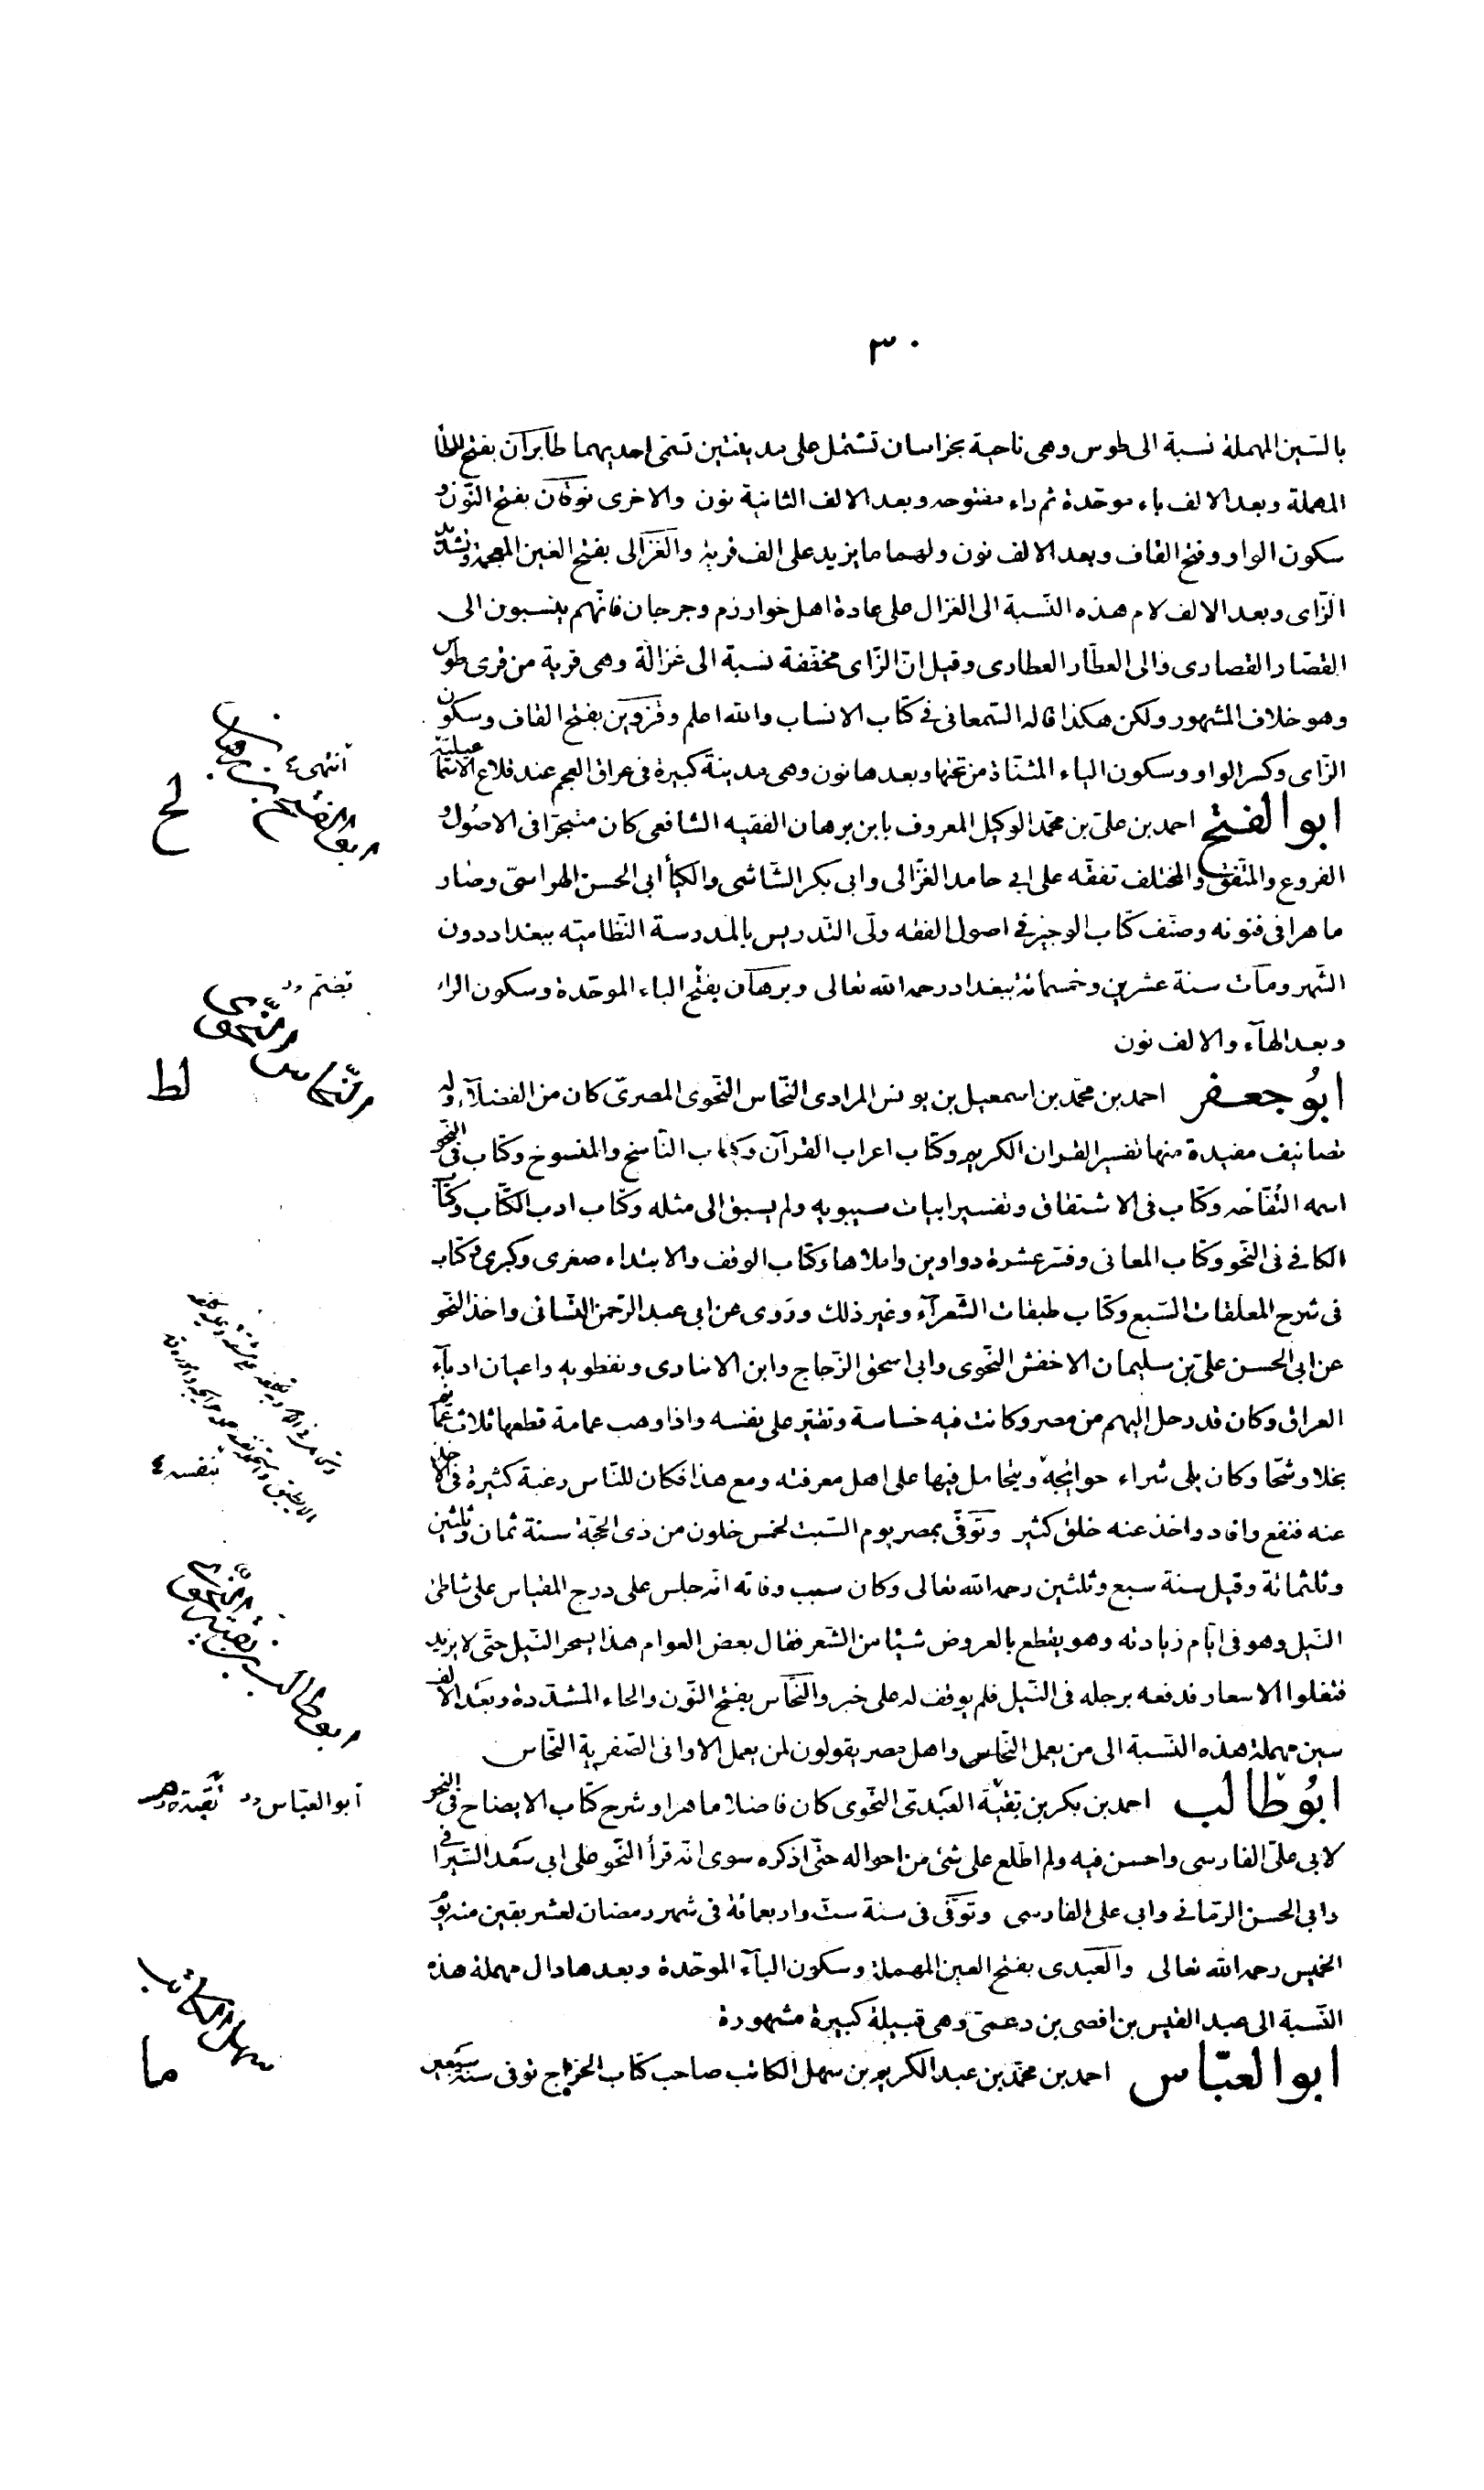 ٣٠
بالسّين المهملة نسبة الى طوس وهى ناحية بخراسان تشتمل على مدينتين تسمّى احديهما طابَرآن بفتح الطا
المهملة وبعد الالف باء موحّدة ثم راء مفتوحه وبعد الالف الثانية نون والاخرى نَوقان بفتح النّون و
سكون الواو وفتح القاف وبعد الالف نون ولهما ما يزيد على الف قرية والغَزالى بفتح الغين المعجمة وتشديد
الزّاى وبعد الالف لام هذه النّسبة الى الغزال على عادة اهل خوارزم وجرجان فانّهم ينسبون الى
القصّار القصارى والى العطّار العطارى وقيل انّ الزّاى مخفّفة نسبة الى غزالة وهى قرية من قرى طوس
وهو خلاف المشهور ولكن هكذا قاله السّمعانى فى كتاب الانساب والله اعلم وقزوين بفتح القاف وسكون
الزّاى وكسر الواو وسكون الياء المثنّاة من تحتها وبعدها نون وهى مدينة كبيرة فى عراق العجم عند قلاع الاسماعيليّة
ابو الفتح احمد بن علىّ بن محمّد الوكيل المعروف بابن برهان الفقيه الشافعى كان متبحّرا فى الاصُول و
الفروع والمتّفق والمختلف تفقّه على ابى حامد الغزّالى وابى بكر الشّاشى والكيأ ابى الحسن الهراسىّ وصار
ماهرا فى فنونه وصنّف كتاب الوجيز فى اصول الفقه ولّى التّدريس بالمدرسة النّظاميّه ببغداد دون
الشّهر ومات سنة عشرين وخمسمائة ببغداد رحمه الله تعالى وبرهآن بفتح الباء الموحّدة وسكون الراء
وبعد الهآء والالف نون
ابُو جعفر احمد بن محمّد بن اسمعيل بن يونس المرادى النّحّاس النّحوى المصرىّ كان من الفضلآء وله
تصانيف مفيدة منها تفسير القران الكريم وكتاب اعراب القرآن وكتاب النّاسخ والمنسوخ وكتاب فى النّحو
اسمه التُفّاحه وكتاب فى الاشتقاق وتفسير ابيات سيبويه ولم يسبق الى مثله وكتاب ادب الكتّاب وكتاب
الكافى فى النّحو وكتاب المعانى وفسّر عشرة دواوين واملاها وكتاب الوقف والابتداء صغرى وكبرى وكتاب
فى شرح المعلّقات السّبع وكتاب طبقات الشّعرآء وغير ذلك ورَوى عن ابى عبد الرّحمن النّسائى واخذ النّحو
عن ابى الحسن علىّ بن سليمان الاخفش النّحوى وابى اسحق الزّجاج وابن الانبارى ونفطويه واعيان ادبآء
العراق وكان قد رحل اليهم من مصر وكانت فيه خساسة وتقتير على نفسه واذا وهب عمامة قطعها ثلاث عمائم
بخلا وشحّا وكان يلى شراء حوائجه ويتحامل فيها على اهل معرفته ومع هذا فكان للنّاس رغبة كثيرة فى الاخذ
عنه فنفع وافاد واخذ عنه خلق كثير وتوفّى بمصر يوم السّبت لخمس خلون من ذى الحجّة سنة ثمان وثلثين
وثلثمائة وقيل سنة سبع وثلثين رحمه الله تعالى وكان سبب وفاته انّه جلس على درج المقياس على شاطئ
النّيل وهو فى ايّام زيادته وهو يقطع بالعروض شيئا من الشّعر فقال بعض العوام هذا يسحر النّيل حتّى لا يزيد
فتغلوا الاسعار فدفعه برجله فى النّيل فلم يوقف له على خبر والنحّاس بفتح النّون والحاء المشدّدة وبعد الالف
سين مهملة هذه النّسبة الى من يعمل النّحاس واهل مصر يقولون لمن يعمل الاوانى الصّفرية النّحّاس
ابُو طالب احمد بن بكر بن بقيّة العَبدىّ النّحوى كان فاضلا ماهرا وشرح كتاب الايضاح فى النحو
لابى علىّ الفارسى واحسن فيه ولم اطّلع على شئ من احواله حتّى اذكره سوى انّه قرأ النّحو على ابى سَعد السّيرافى
وابى الحسن الرمّانى وابى على الفارسى وتوفّى فى سنة ستّ واربعمائة فى شهر رمضان لعشر بقين منه يوم
الخميس رحمه الله تعالى والعَبدى بفتح العين المهملة وسكون البآء الموحّدة وبعدها دال مهملة هذه
النّسبة الى عبد القيس بن افصى بن دعمىّ وهى قبيلة كبيرة مشهورة
ابو العبّاس احمد بن محمّد بن عبد الكريم بن سهل الكاتب صاحب كتاب الخراج توفى سنة سبعين
انتهى ٤
ابو الفتح بن برهان
لح
النحّاس النّحوى
لط
بنفسه ٤
ابو طالب بن بقيّة النّحوى
ابو العبّاس
سهل الكاتب
ما